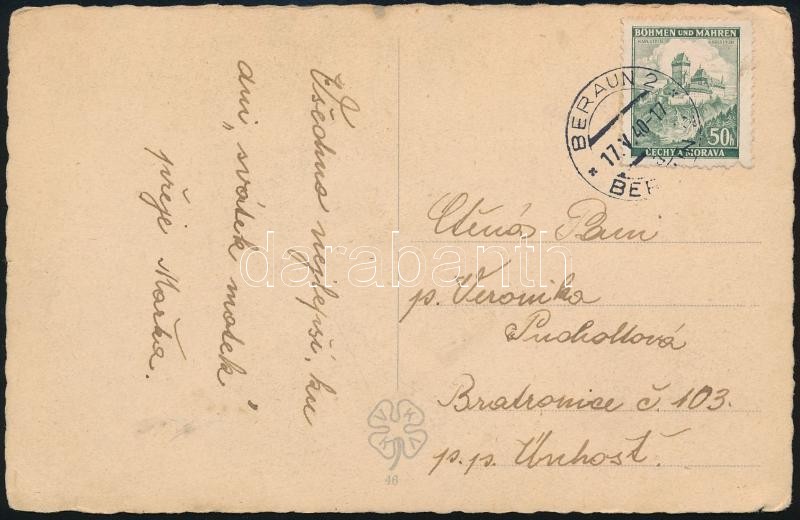 Všechno nejlepší, ku
dni „svátek matek"
přeje Mařka.
BÖHMEN UND MÄHREN
50h
ČECHY A MORAVA
BERAUN 2
17.V.40-17
BER
Ctěná Paní
p. Veronika
Pucholtová
Bratronice č. 103.
p.p. Unhošť.
46
darabanth